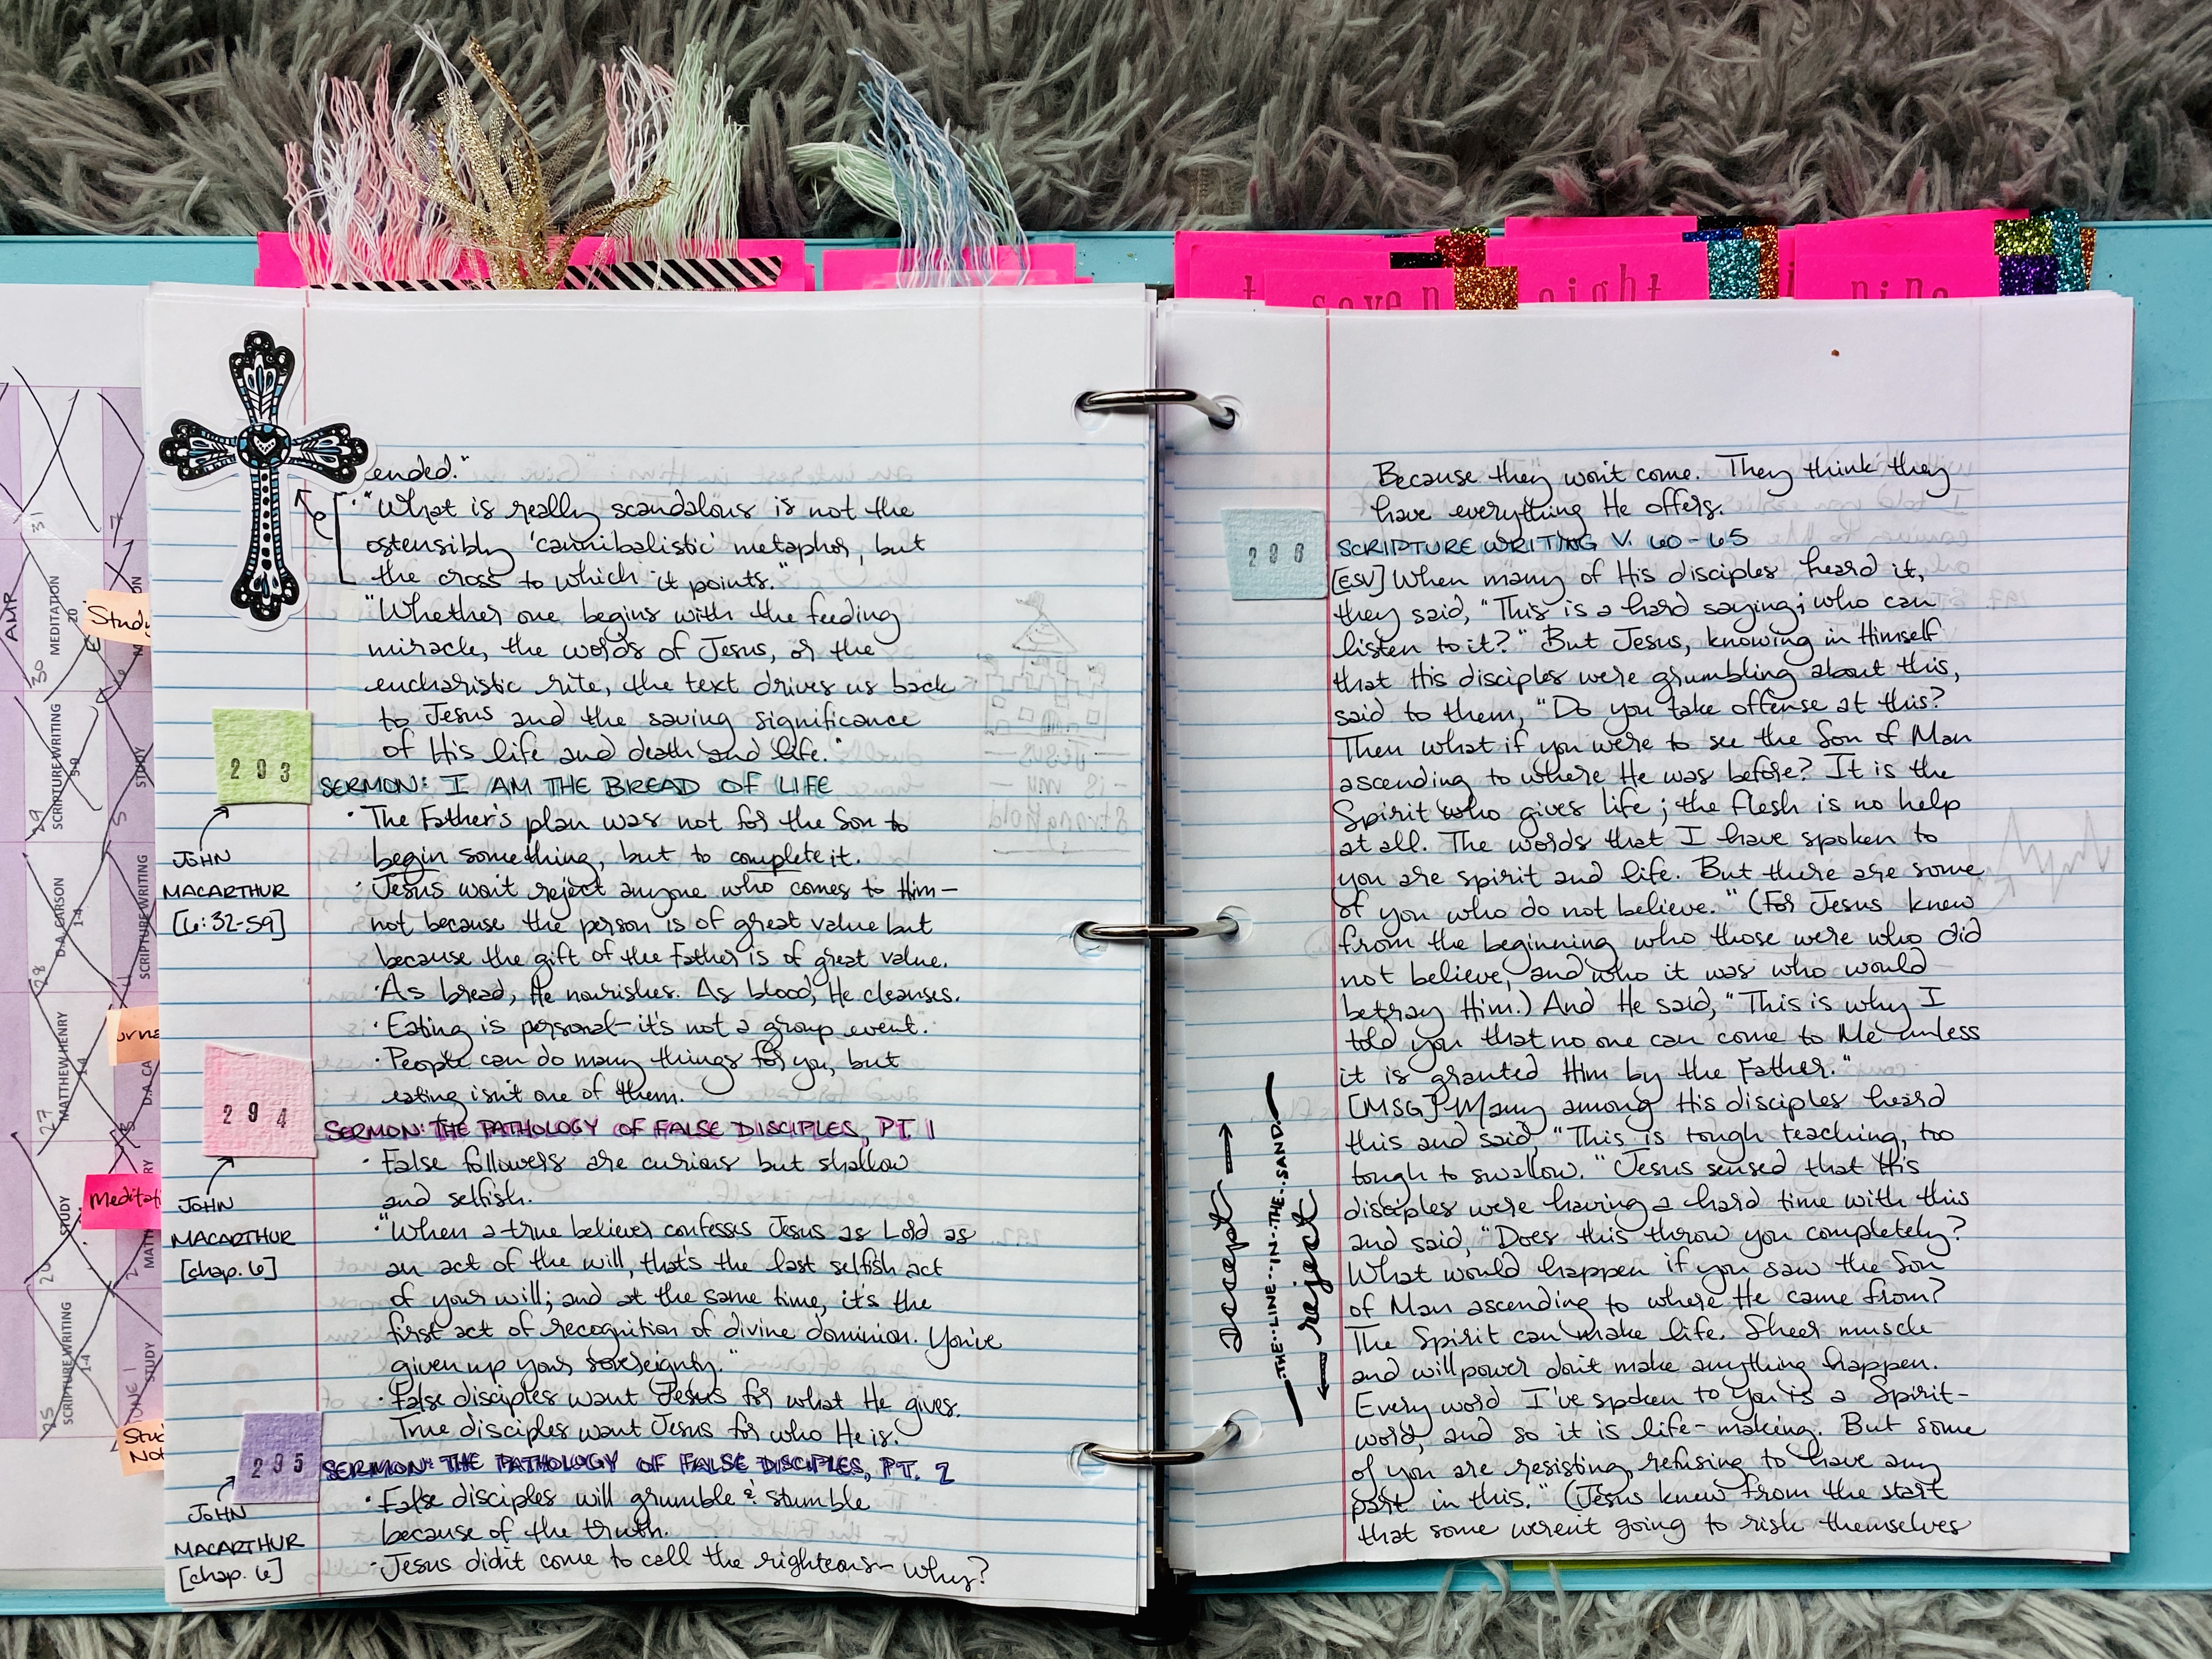 seven
eight
nine
Study
Meditat
Stud
Not
31
AMR
30
MEDITATION
20
29
SCRIPTURE WRITING
5-9
STUDY
28
D.A. CARSON
1-4
SCRIPTURE WRITING
27
MATTHEW HENRY
1-4
D.A. CA
STUDY
SCRIPTURE WRITING
1-4
25
STUDY
ended."
• "What is really scandalous is not the
ostensibly 'cannibalistic' metaphor, but
the cross to which it points."
"Whether one begins with the feeding
miracle, the words of Jesus, or the
eucharistic rite, the text drives us back
to Jesus and the saving significance
of His life and death and life."
293
SERMON: I AM THE BREAD OF LIFE
JOHN
MACARTHUR
[6:32-59]
• The Father's plan was not for the Son to
begin something, but to complete it.
• Jesus won't reject anyone who comes to Him—
not because the person is of great value but
because the gift of the Father is of great value.
• As bread, He nourishes. As blood, He cleanses.
• Eating is personal—it's not a group event.
• People can do many things for you, but
eating isn't one of them.
294
SERMON: THE PATHOLOGY OF FALSE DISCIPLES, PT. 1
JOHN
MACARTHUR
[chap. 6]
• False followers are curious but shallow
and selfish.
• "When a true believer confesses Jesus as Lord as
an act of the will, that's the last selfish act
of your will; and at the same time, it's the
first act of recognition of divine dominion. You've
given up your sovereignty."
• False disciples want Jesus for what He gives.
True disciples want Jesus for who He is.
295
SERMON: THE PATHOLOGY OF FALSE DISCIPLES, PT. 2
JOHN
MACARTHUR
[chap. 6]
• False disciples will grumble & stumble
because of the truth.
• Jesus didn't come to call the righteous—why?
Because they won't come. They think they
have everything He offers.
296
SCRIPTURE WRITING V. 60-65
[ESV] When many of His disciples heard it,
they said, "This is a hard saying; who can
listen to it?" But Jesus, knowing in Himself
that His disciples were grumbling about this,
said to them, "Do you take offense at this?
Then what if you were to see the Son of Man
ascending to where He was before? It is the
Spirit who gives life; the flesh is no help
at all. The words that I have spoken to
you are spirit and life. But there are some
of you who do not believe." (For Jesus knew
from the beginning who those were who did
not believe, and who it was who would
betray Him.) And He said, "This is why I
told you that no one can come to Me unless
it is granted Him by the Father."
[MSG] Many among His disciples heard
this and said, "This is tough teaching, too
tough to swallow." Jesus sensed that His
disciples were having a hard time with this
and said, "Does this throw you completely?
What would happen if you saw the Son
of Man ascending to where He came from?
The Spirit can make life. Sheer muscle
and willpower don't make anything happen.
Every word I've spoken to you is a Spirit-
word, and so it is life-making. But some
of you are resisting, refusing to have any
part in this." (Jesus knew from the start
that some weren't going to risk themselves
accept →
THE LINE IN THE SAND
← reject